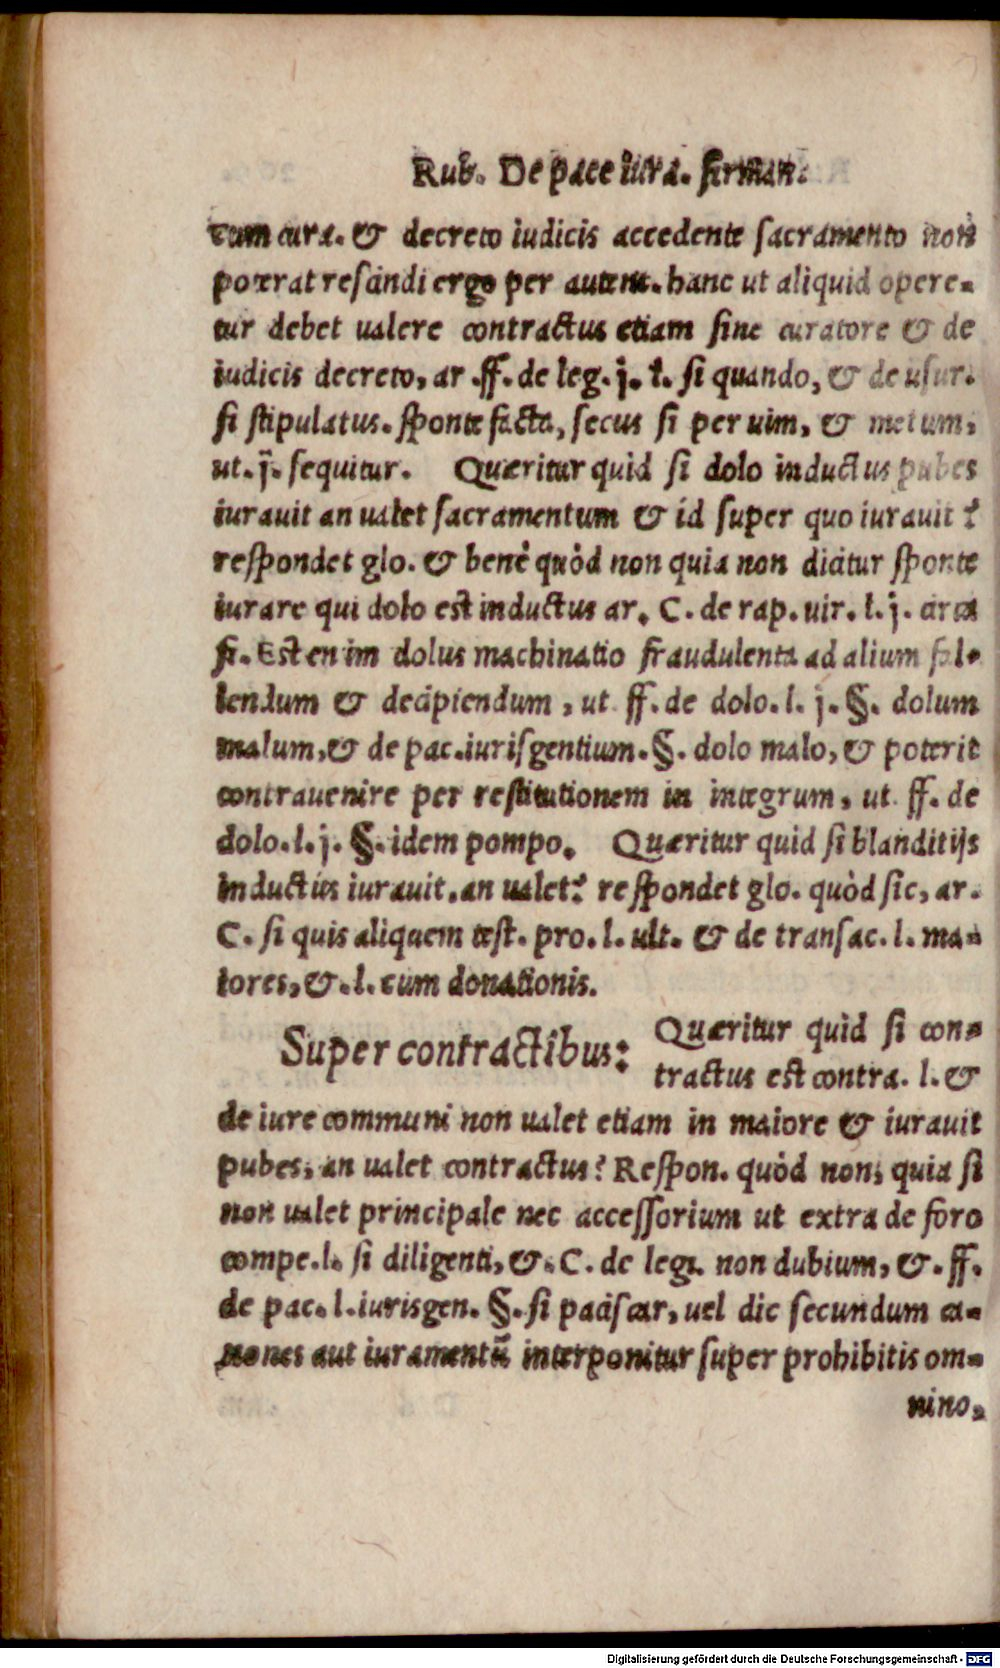 Rub. De pace iura. firman.
cum cura. & decreto iudicis accedente sacramento non
poterat rescindi ergo per autent. hanc ut aliquid opere-
tur debet ualere contractus etiam sine curatore & de
iudicis decreto, ar .ff. de leg. j. l. si quando, & de usur.
si stipulatus. sponte facta, secus si per uim, & metum,
ut. j. sequitur. Quæritur quid si dolo inductus pubes
iurauit an ualet sacramentum & id super quo iurauit?
respondet glo. & benè quòd non quia non dicitur sponte
iurare qui dolo est inductus ar. C. de rap. uir. l. j. circa
fi. Est enim dolus machinatio fraudulenta ad alium fal-
lendum & decipiendum, ut ff. de dolo. l. j. §. dolum
malum, & de pac. iurisgentium. §. dolo malo, & poterit
contrauenire per restitutionem in integrum, ut ff. de
dolo. l. j. §. idem pompo. Quæritur quid si blanditijs
inductus iurauit. an ualet? respondet glo. quòd sic, ar.
C. si quis aliquem test. pro. l. ult. & de transac. l. ma-
iores, &. l. cum donationis.
Super contractibus: Quæritur quid si con-
tractus est contra. l. &
de iure communi non ualet etiam in maiore & iurauit
pubes, an ualet contractus? Respon. quòd non, quia si
non ualet principale nec accessorium ut extra de foro
compe. l. si diligenti, &. C. de legi. non dubium, &. ff.
de pac. l. iurisgen. §. si paciscar, uel dic secundum ca-
nones aut iuramentũ interponitur super prohibitis om-
nino,
Digitalisierung gefördert durch die Deutsche Forschungsgemeinschaft - DFG